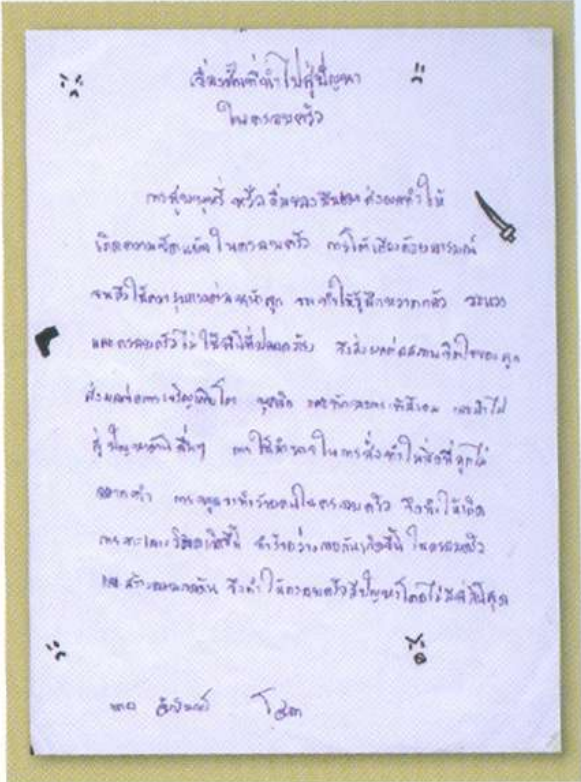 เรื่องที่นำไปสู่ปัญหา
ในครอบครัว
การสูบบุหรี่ หรือดื่มของมึนเมา ส่งผลทำให้
เกิดความขัดแย้งในครอบครัว การโต้เถียงด้วยอารมณ์
จนถึงใช้ความรุนแรงต่อหน้าลูก จะทำให้รู้สึกหวาดกลัว ระแวง
และครอบครัวไม่ใช่ที่ที่ปลอดภัย จึงส่งผลต่อสภาพจิตใจของลูก
ส่งผลต่อการเจริญเติบโต บุคลิก และทักษะทางสังคม และนำไป
สู่ปัญหาด้านอื่นๆ การใช้อำนาจในการสั่งทำในสิ่งที่ลูกไม่
อยากทำ การทำร้ายคนในครอบครัว จึงทำให้เกิด
การทะเลาะวิวาทเกิดขึ้น เกิดขึ้นในครอบครัว
และสร้างความกดดัน จึงทำให้ครอบครัวมีปัญหาโดยไม่มีที่สิ้นสุด